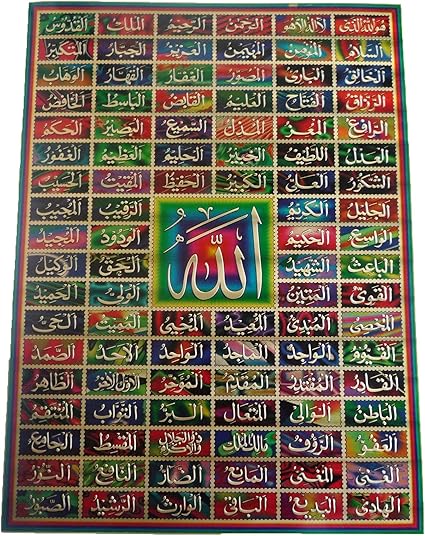 هو الله الذي لا إله إلا هو الرحمن الرحيم الملك القدوس
السلام المؤمن المهيمن العزيز الجبار المتكبر
الخالق البارئ المصور الغفار القهار الوهاب
الرزاق الفتاح العليم القابض الباسط الخافض
الرافع المعز المذل السميع البصير الحكم
العدل اللطيف الخبير الحليم العظيم الغفور
الشكور العلي الكبير الحفيظ المقيت الحسيب
الجليل الكريم الرقيب المجيب
الواسع الحكيم الودود المجيد
الله
الباعث الشهيد الحق الوكيل
القوي المتين الولي الحميد
المحصي المبدئ المعيد المحيي المميت الحي
القيوم الواجد الماجد الواحد الأحد الصمد
القادر المقتدر المقدم المؤخر الأول الآخر الظاهر
الباطن الوالي المتعال البر التواب المنتقم
العفو الرؤوف مالك الملك ذو الجلال والإكرام المقسط الجامع
الغني المغني المانع الضار النافع النور
الهادي البديع الباقي الوارث الرشيد الصبور